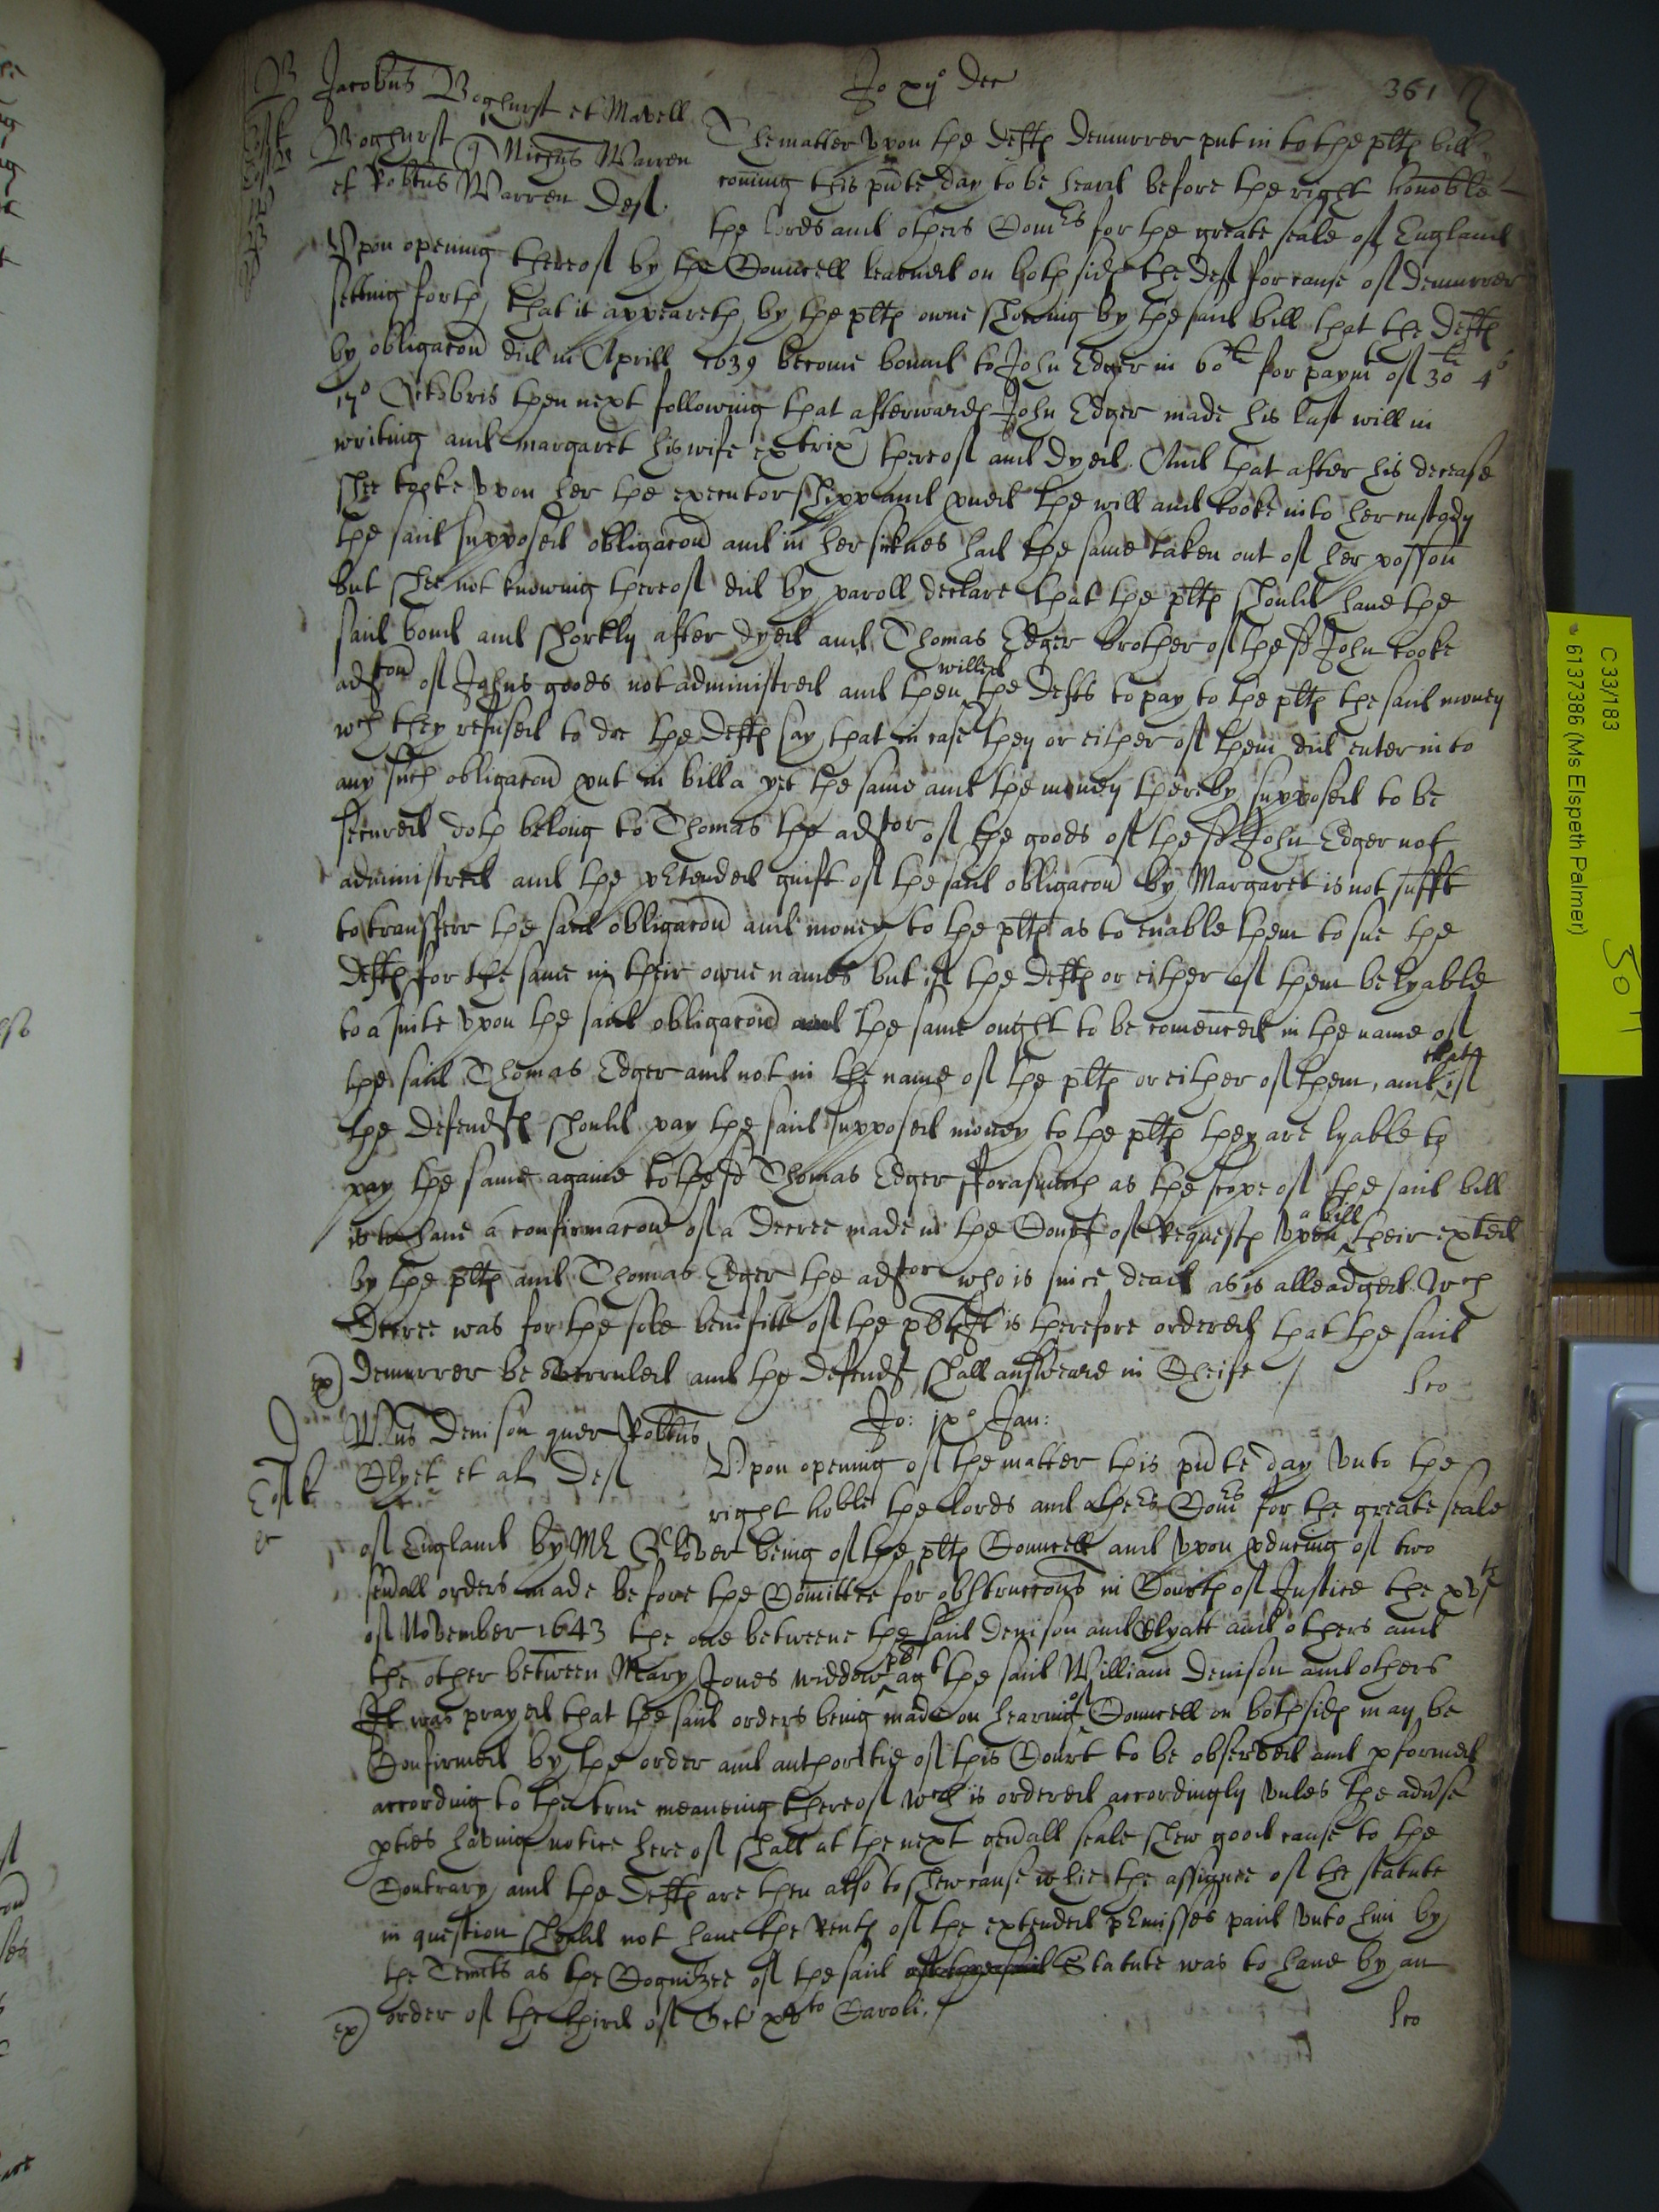 Jo xij° Dec
361
B Jacobus Boghurst et Mabell
Boghurst q Nichus Warren
et Robtus Warren Def.
The matter upon the defts demurrer put in to the plts bill
coming this pnte day to be heard before the right honoble
the lords and others Comrs for the greate seale of England
Upon opening thereof by the Councell learned on both sides the def for cause of demurrer
setting forth that it appeareth by the plts owne shewing by the said bill that the defts
by obligacon did in Aprill 1639 become bound to John Edger in 60li for paymt of 30li 4s
17° Octobris then next following that afterwards John Edger made his last will in
writing and margaret his wife extrix thereof and dyed. And that after his decease
shee tooke upon her the executorshipp and pued the will and tooke into her custody
the said supposed obligacon and in her sicknes had the same taken out of her possion
but shee not knowing thereof did by paroll declare that the plts should have the
said bond and shortly after dyed and Thomas Edger brother of the sd John tooke
admcon of Johns goods not administred and then willed the defts to pay to the plts the said money
wch they refused to doe the defts say that in case they or either of them did enter into
any such obligacon put in bill a yet the same and the money thereby supposed to be
secured doth belong to Thomas the admtor of the goods of the sd John Edger not
administred and the ptended guift of the said obligacon by Margaret is not suffit
to transferr the said obligacon and money to the plts as to enable them to sue the
defts for the same in their owne names but if the defts or either of them be lyable
to a suite upon the said obligacon and the same ought to be comenced in the name of
the said Thomas Edger and not in the name of the plts or either of them, and that if
the defendts should pay the said supposed money to the plts they are lyable to
pay the same againe to the sd Thomas Edger fforasmuch as the scope of the said bill
is to have a confirmacon of a decree made in the Court of Requests upon a bill their exted
by the plts and Thomas Edger the admtor who is since dead as is alleadged wch
decree was for the sole benifitt of the plts It is therefore ordered that the said
ex) demurrer be overruled and the defendts shall answeare in Cheife /
Jo: ix° Jan:
D Wms Denison quer Robtus
Elyet et al Def
Upon opening of the matter this pnte day unto the
right hoble the lords and others Comrs for the greate seale
of England by Mr Glover being of the plts Councell and upon pducing of two
seuall orders made before the Comittee for obstruccons in Courts of Justice the xvth
of November 1643 the one betweene the said Denison and Elyatt and others and
the other between Mary Jones widdow plt agt the said William Denison and others
It was prayed that the said orders being made on hearing of Councell on both sides may be
Confirmed by the order and authoritie of this Court to be observed and pformed
according to the true meaneing thereof wch is ordered accordingly unles the advse
pties having notice hereof shall at the next genall seale shew good cause to the
Contrary and the defts are then also to shew cause whie the assignee of the statute
in question should not have the rents of the extended pmisses paid unto him by
the Tenants as the Cognizee of the said Statute was to have by an
ex) order of the third of Oct xvto Caroli. /
C33/183
6137386 (Ms Elspeth Palmer)